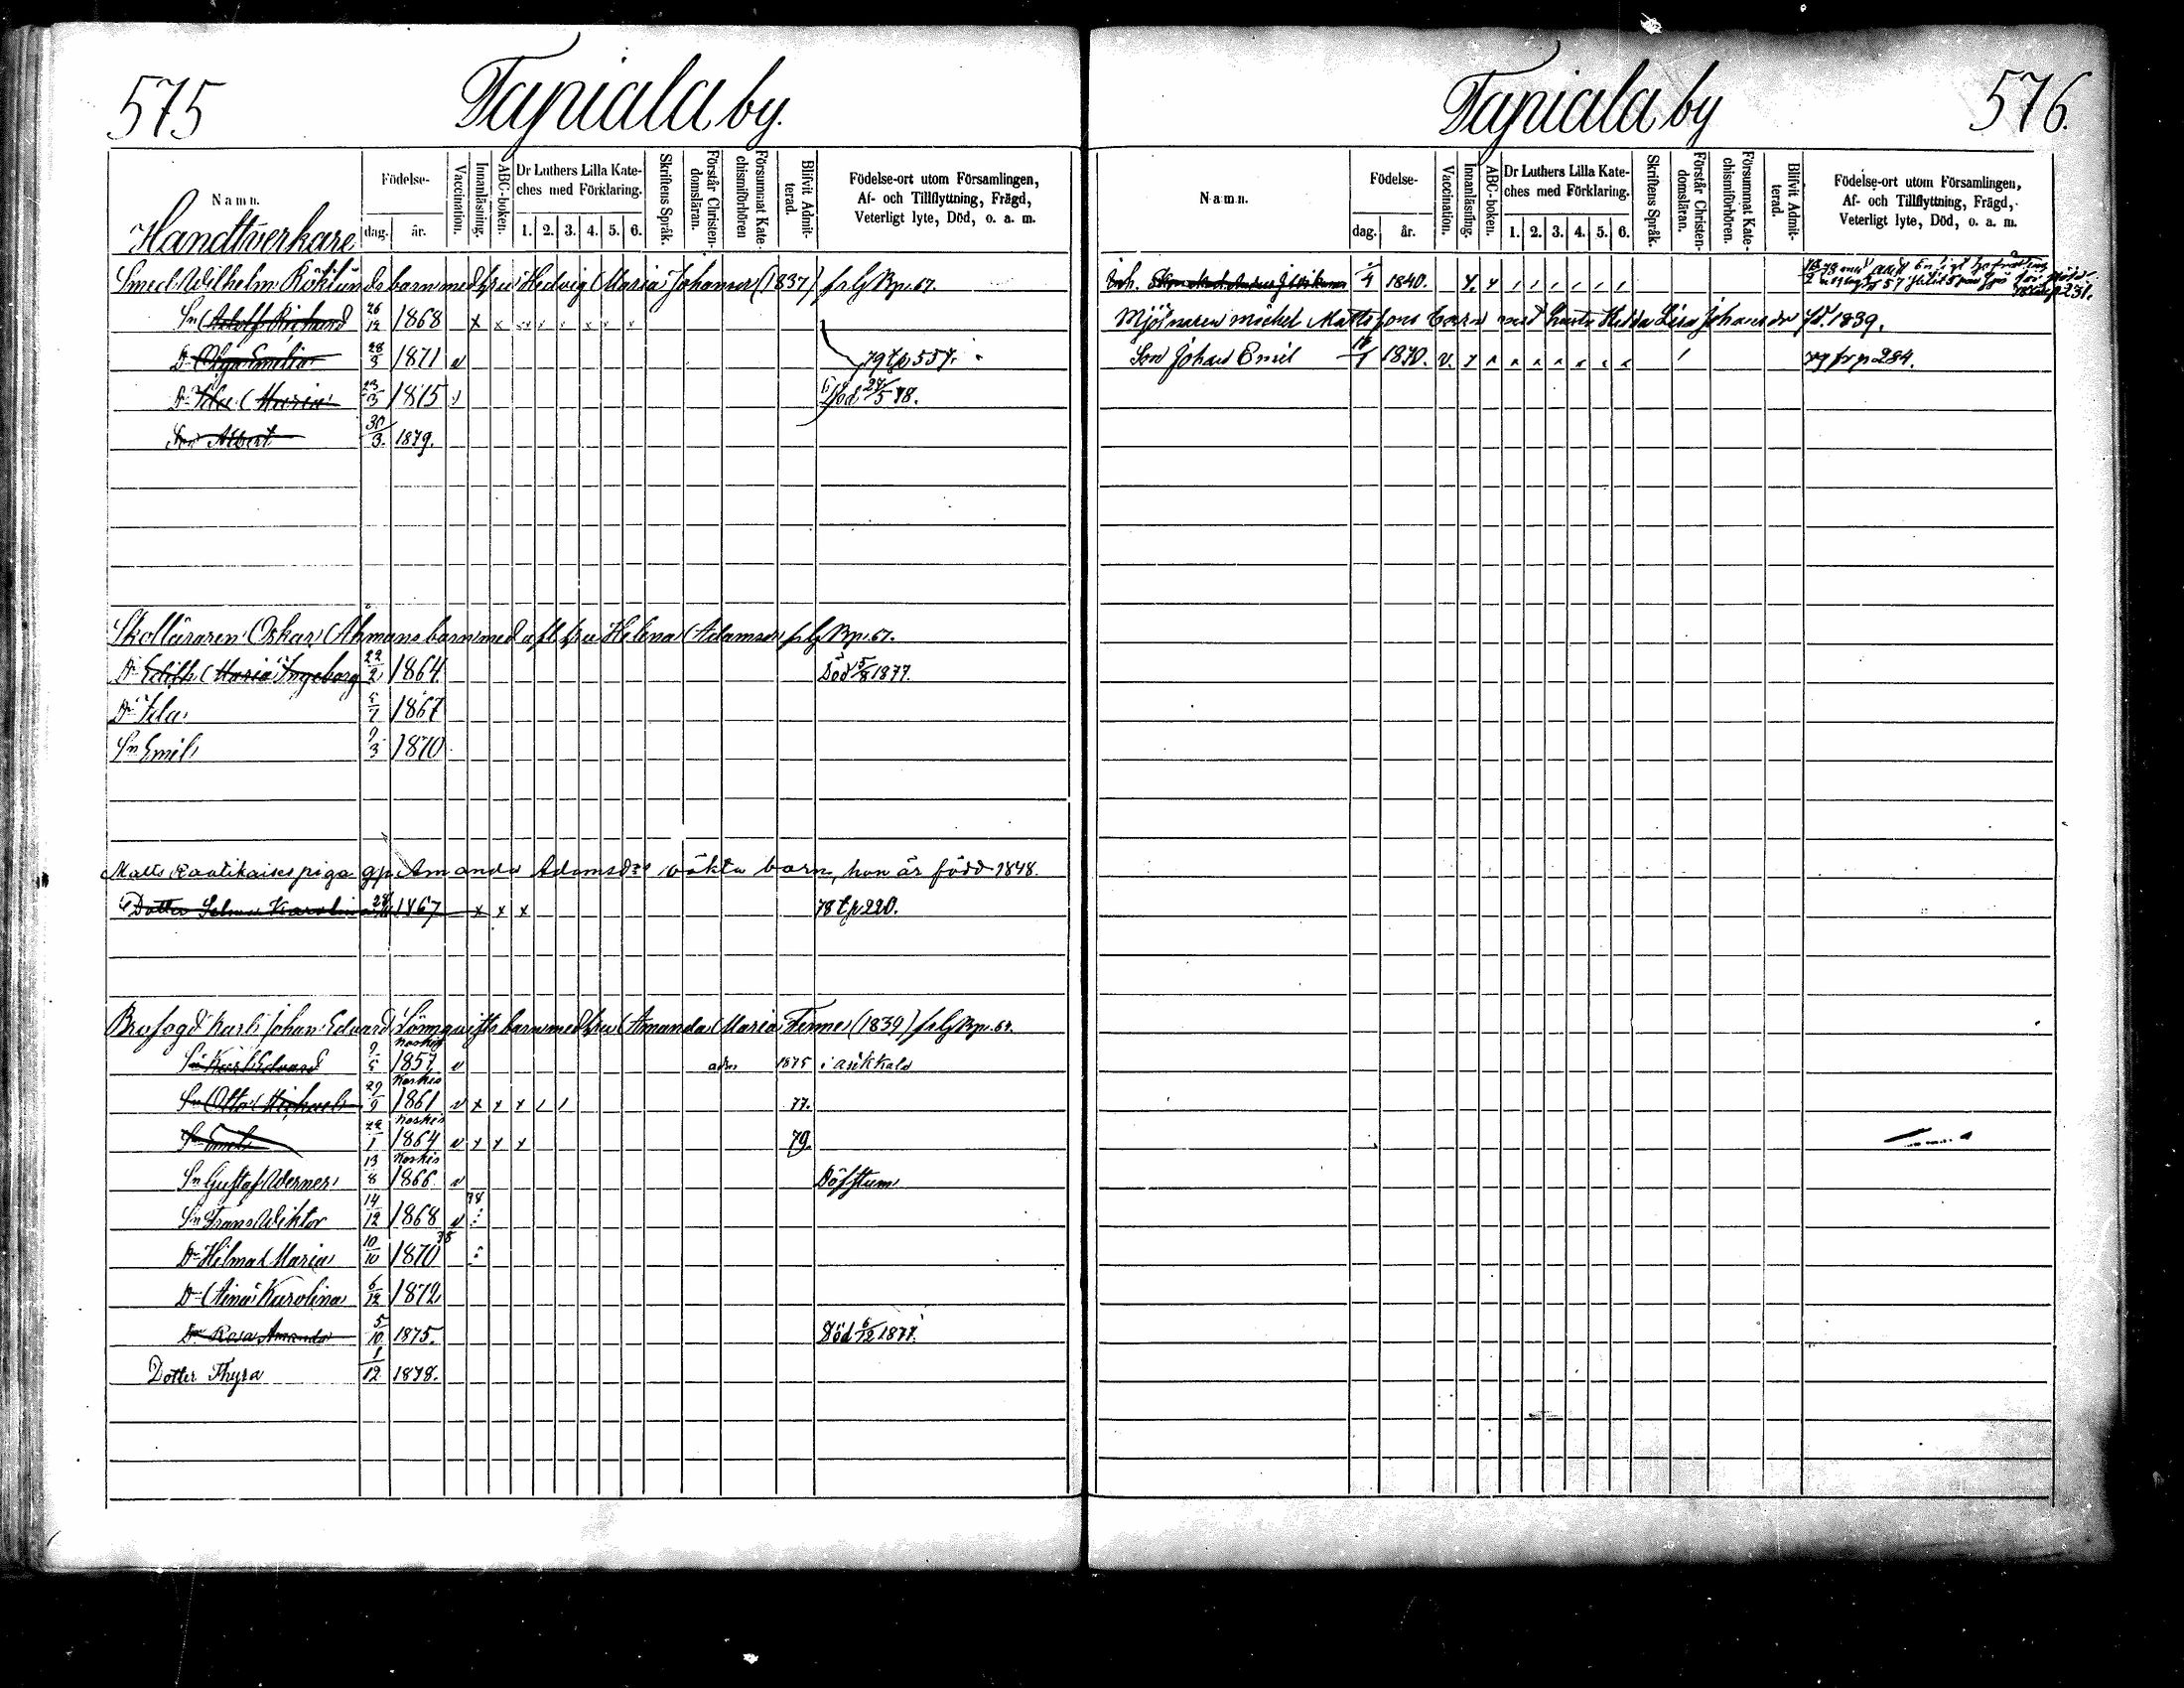 575
Tapiala by.
Namn.
Födelse-
dag.
år.
Vaccination.
Innanläsning.
ABC-boken.
Dr Luthers Lilla Kate-
ches med Förklaring.
1. 2. 3. 4. 5. 6.
Skriftens Språk.
Förstår Christen-
domsläran.
Försummat Kate-
chismiförhören
Blifvit Admit-
terad.
Födelse-ort utom Församlingen,
Af- och Tillflyttning, Frägd,
Veterligt lyte, Död, o. a. m.
Handtverkare
Smed Wilhelm barn med hru Hedvig Maria Johansdr (1837) Bp. 67.
Sn Adolf Richard 26/12 1868 x x
Dr Olga Emilia 28/3 1871 v 79 tp 557.
Dr Ida Maria 23/3 1875 v död 24/5 78.
Son Albert 30/3. 1879.
Skolläraren Oskar Åhmans barn med afl hru Helena Adamsdr Bp. 67.
Dr Edith Maria Ingeborg 22/2 1864 Död 5/8 1877.
Dr Ida 5/7 1867
Sn Emil 9/3 1870
Matts Raatikaises piga gp Amanda Adamsdrs oäkta barn, hon är född 1848.
Dotter Selma Karolina 1867 x x x 78 tp 220.
Brofogd Karl Johan Edvard barn med hru Amanda Maria Tenne (1839) Bp. 67.
Sn Karl Edvard 9/5 Koskis 1857 v adm 1875 i Asikkala
Sn Otto Michael 29/9 Koskis 1861 v x x x 77.
Sn Emil 22/1 Koskis 1864 v x x x 79.
Sn Gustaf Werner 13/8 Koskis 1866. v Döfstum
Sn Frans Wiktor 14/12 1868 v 78
Dr Hilma Maria 10/10 1870 78
Dr Aina Karolina 6/12 1872
Dr Rosa Amanda 5/10 1875. Död 6/12 1877.
Dotter Thyra 1/12 1878.
Tapiala by
576.
Namn.
Födelse-
dag.
år.
Vaccination.
Innanläsning.
ABC-boken.
Dr Luthers Lilla Kate-
ches med Förklaring.
1. 2. 3. 4. 5. 6.
Skriftens Språk.
Förstår Christen-
domsläran.
Försummat Kate-
chismiförhören.
Blifvit Admit-
terad.
Födelse-ort utom Församlingen,
Af- och Tillflyttning, Frägd,
Veterligt lyte, Död, o. a. m.
Inh. 1840. p 231.
Mjölnaren Michel Mattssons barn med hustr Hedda Lisa Johansdr fd. 1839.
Son Johan Emil 1870. v. x 79 fr p 284.